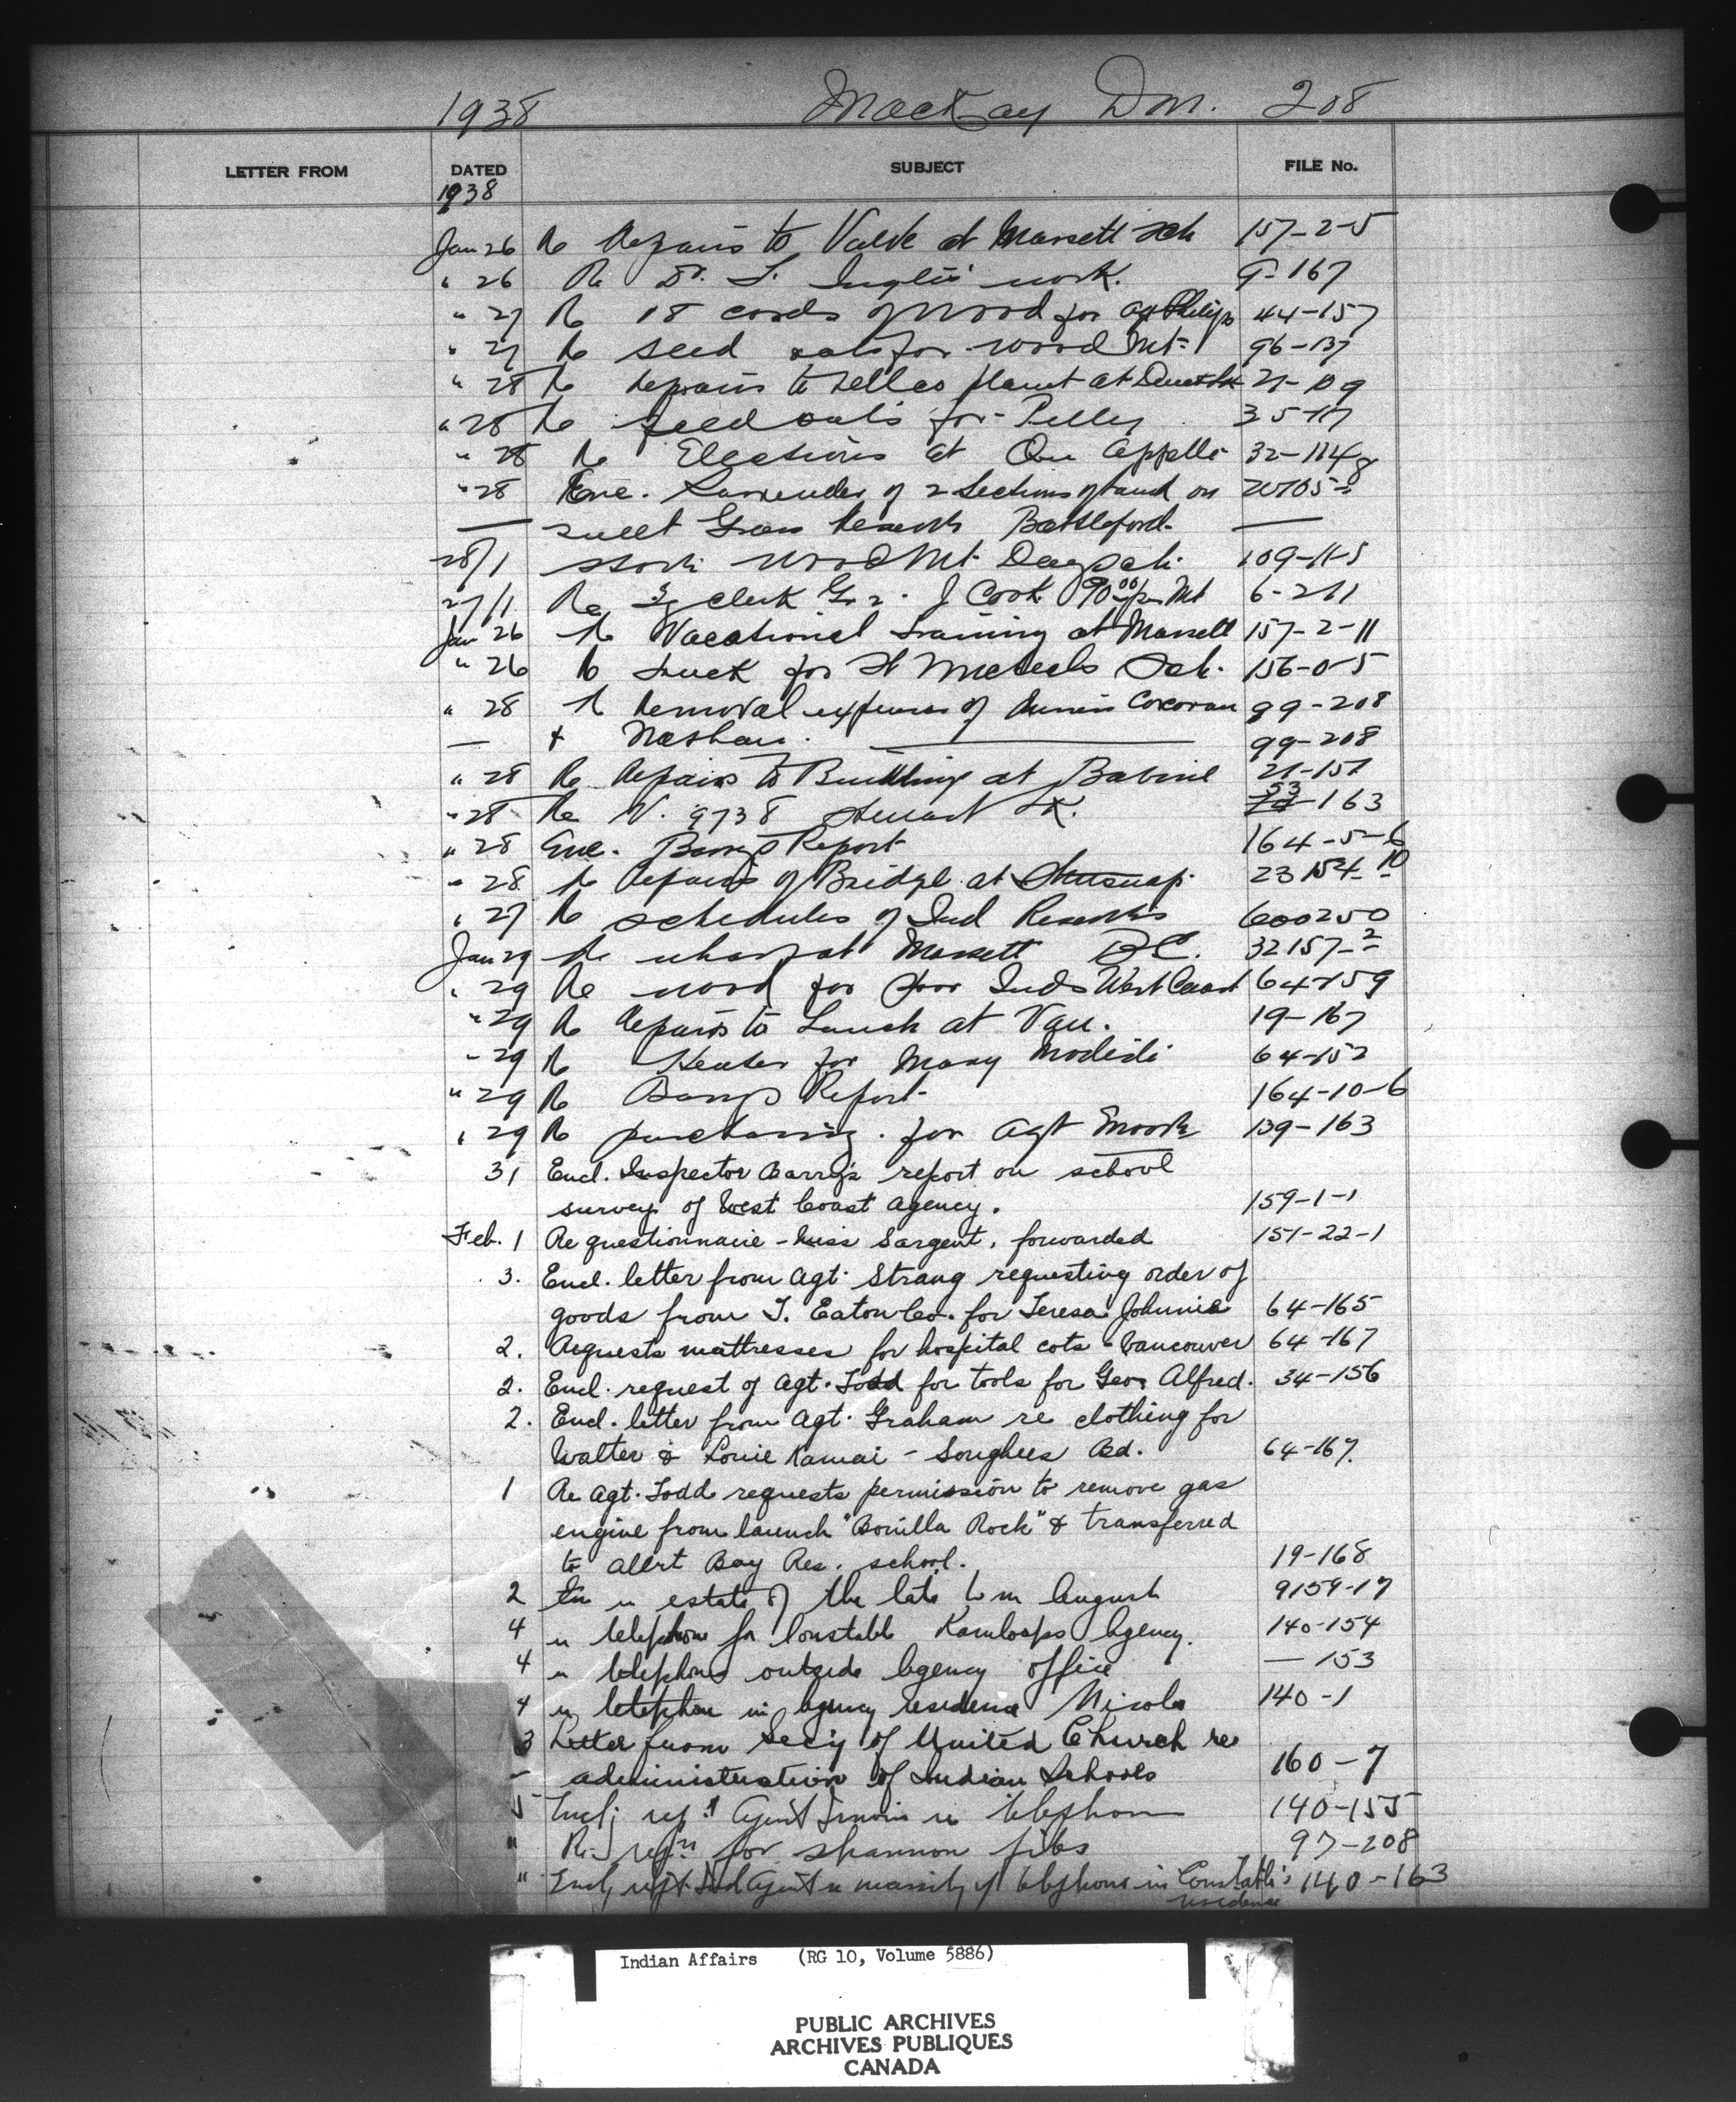 1938 MacKay D.M. 208
LETTER FROM DATED SUBJECT FILE No.
1938
Jan 26 Re Repairs to Valve at Massett Sch 157-2-5
" 26 Re Dr. Inglis' work. 9-167
" 27 Re 18 cords of wood for 44-157
" 27 Re seed oats for Wood Mt. 96-137
" 28 Re Repairs to plant at 21-109
" 28 Re seed oats for Pelly 35-117
" 28 Re Elections at Qu'Appelle 32-114
" 28 Enc. Surrender of 2 Sections of land on
— Sweet Grass Reserve Battleford. —
28/1 Wood Mt Day Sch. 109-11-5
27/1 Re clerk Gr 2. J Cook 90.00 per Mt 6-211
Jan 26 Re Vacational training at Massett 157-2-11
" 26 Re truck for St Michaels Sch. 156-0-5
" 28 Re Removal expenses of Corcoran 99-208
— + Nashau. — 99-208
" 28 Re Repairs to Building at Babine 21-151
" 28 Re V. 9738 Stuart LK. 53-163
" 28 Enc. Barry's Report 164-5-6
" 28 Re Repairs of Bridge at 23 154-10
" 27 Re schedules of Ind Reserves 600250
Jan 29 Re wharf at Massett B.C. 32157-2
" 29 Re wood for poor Inds West Coast 64-159
" 29 Re Repairs to Launch at Van. 19-167
" 29 Re Heater for Mary 64-152
" 29 Re Barry's Report 164-10-6
" 29 Re purchasing for Agt 139-163
31 Encl. Inspector Barry's report on school
survey of West Coast Agency. 159-1-1
Feb. 1 Re questionnaire - Miss Sargent, forwarded 151-22-1
3. Encl. letter from Agt. Strang requesting order of
goods from T. Eaton Co. for Teresa Johnnie 64-165
2. Requests mattresses for hospital cots - Vancouver 64-167
2. Encl. request of Agt. Todd for tools for Geo. Alfred. 34-156
2. Encl. letter from Agt. Graham re clothing for
Walter & Louie Kamai - Songhees Bd. 64-167.
1 Re Agt. Todd requests permission to remove gas
engine from launch "Bonilla Rock" & transferred
to Alert Bay Res. school. 19-168
2 re estate of the late Wm August 9159-17
4 re telephone for Constable Kamloops Agency. 140-154
4 re telephone outside Agency office — 153
4 re telephone in Agency residence Nicola 140-1
3 Letter from Sec'y of United Church re
- administration of Indian Schools 160-7
5 Encl; Agent re telephone 140-155
" for shannon files 97-208
" Encl; Agent re necessity of telephone in Constable's 140-163
residence
Indian Affairs (RG 10, Volume 5886)
PUBLIC ARCHIVES
ARCHIVES PUBLIQUES
CANADA